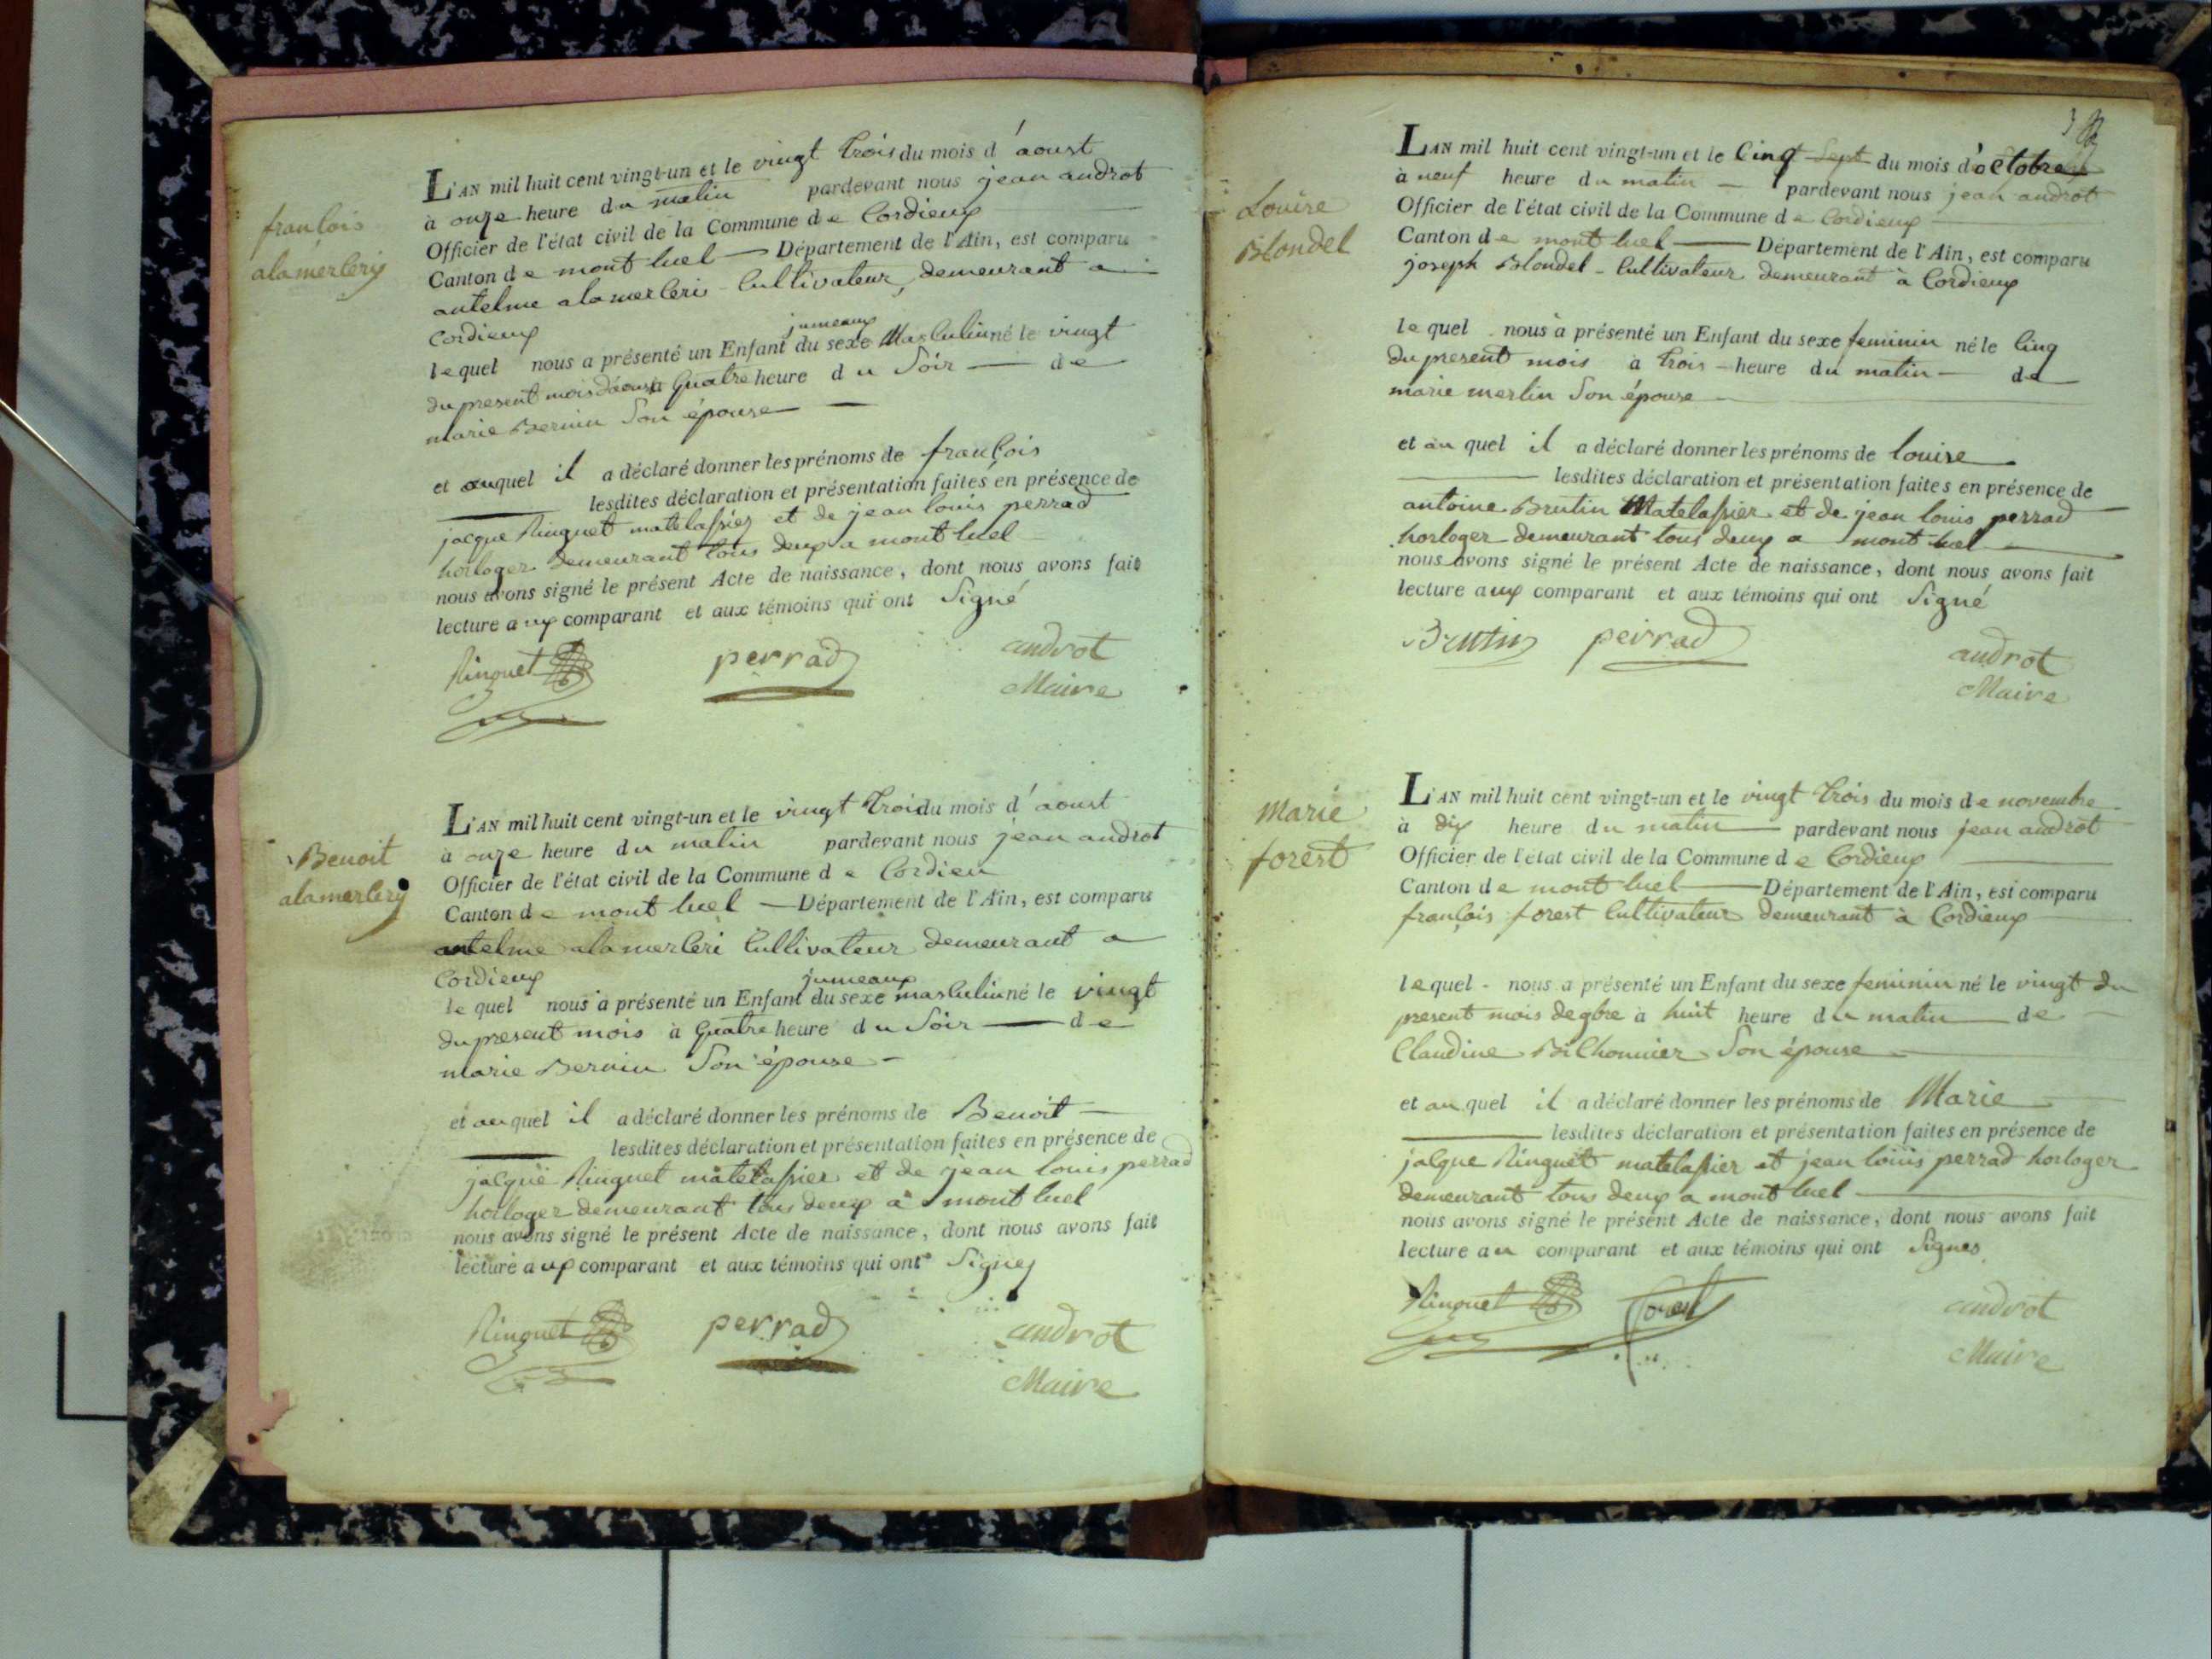 françois
alamercery
L'AN mil huit cent vingt-un et le vingt trois du mois d'aoust
à onze heure du matin pardevant nous jean androt
Officier de l'état civil de la Commune de Cordieux
Canton de mont luel Département de l'Ain, est comparu
antelme alamerceri Cultivateur, demeurant a
Cordieux
jumeaux
lequel nous a présenté un Enfant du sexe Masculin né le vingt
du present mois d'aoust à Quatre heure du Soir de
marie Bernin Son épouse
et auquel il a déclaré donner les prénoms de françois
lesdites déclaration et présentation faites en présence de
jacque Ringuet matelassier et de jean louis perrad
horloger demeurant tous deux a mont luel
nous avons signé le présent Acte de naissance, dont nous avons fait
lecture aux comparant et aux témoins qui ont Signé
Ringuet perrad androt
Maire
Benoit
alamercery
L'AN mil huit cent vingt-un et le vingt troi du mois d'aoust
à onze heure du matin pardevant nous jean androt
Officier de l'état civil de la Commune de Cordieu
Canton de mont luel Département de l'Ain, est comparu
antelme alamerceri Cultivateur demeurant a
Cordieux
jumeaux
le quel nous a présenté un Enfant du sexe masculin né le vingt
du present mois à Quatre heure du Soir de
marie Bernin Son épouse
et au quel il a déclaré donner les prénoms de Benoit
lesdites déclaration et présentation faites en présence de
jacque Ringuet matelassier et de jean louis perrad
horloger demeurant tous deux à mont luel
nous avons signé le présent Acte de naissance, dont nous avons fait
lecture aux comparant et aux témoins qui ont Signes
Ringuet perrad androt
Maire
Louise
Blondel
L'AN mil huit cent vingt-un et le Cinq Sept du mois d'octobre
à neuf heure du matin pardevant nous jean androt
Officier de l'état civil de la Commune de Cordieux
Canton de mont luel Département de l'Ain, est comparu
joseph Blondel Cultivateur demeurant à Cordieux
le quel nous a présenté un Enfant du sexe feminin né le Cinq
du present mois à trois heure du matin de
marie merlin Son épouse
et au quel il a déclaré donner les prénoms de louise
lesdites déclaration et présentation faites en présence de
antoine Brutin Matelassier et de jean louis perrad
horloger demeurant tous deux a mont luel
nous avons signé le présent Acte de naissance, dont nous avons fait
lecture aux comparant et aux témoins qui ont Signé
Brutin perrad androt
Maire
Marie
forest
L'AN mil huit cent vingt-un et le vingt trois du mois de novembre
à dix heure du matin pardevant nous jean androt
Officier de l'état civil de la Commune de Cordieux
Canton de mont luel Département de l'Ain, est comparu
françois forest Cultivateur demeurant à Cordieux
lequel nous a présenté un Enfant du sexe feminin né le vingt du
present mois de 9bre à huit heure du matin de
Claudine Bilhonnier Son épouse
et au quel il a déclaré donner les prénoms de Marie
lesdites déclaration et présentation faites en présence de
jacque Ringuet matelassier et jean louis perrad horloger
demeurant tous deux a mont luel
nous avons signé le présent Acte de naissance, dont nous avons fait
lecture au comparant et aux témoins qui ont Signes
Ringuet forest androt
Maire